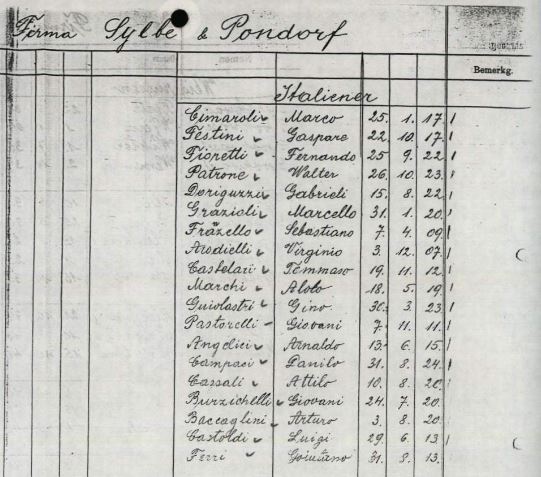 Firma Sylbe & Pondorf
Bemerkg.
Italiener
Cimaroli Marco 25. 1. 17.
Festini Gaspare 22. 10. 17.
Fioretti Fernando 25 9. 22.
Patrone Walter 26. 10. 23.
Deriguzzi Gabrieli 15. 8. 22
Grazioli Marcello 31. 1. 20.
Fräzello Sebastiano 7. 4. 09
Arodielli Virginio 3. 12. 07.
Castelari Temmaso 19. 11. 12.
Marchi Aloto 18. 5. 19
Guiolastri Gino 30. 3. 23
Pastorelli Giovani 7. 11. 11.
Angelici Arnaldo 13. 6. 15.
Campaci Danilo 31. 8. 24.
Cassali Attilo 10. 8. 20.
Burzichelli Giovani 24. 7. 20.
Baccaglini Arturo 3. 8. 20.
Castoldi Luigi 29. 6. 13.
Ferri 31. 8. 13.